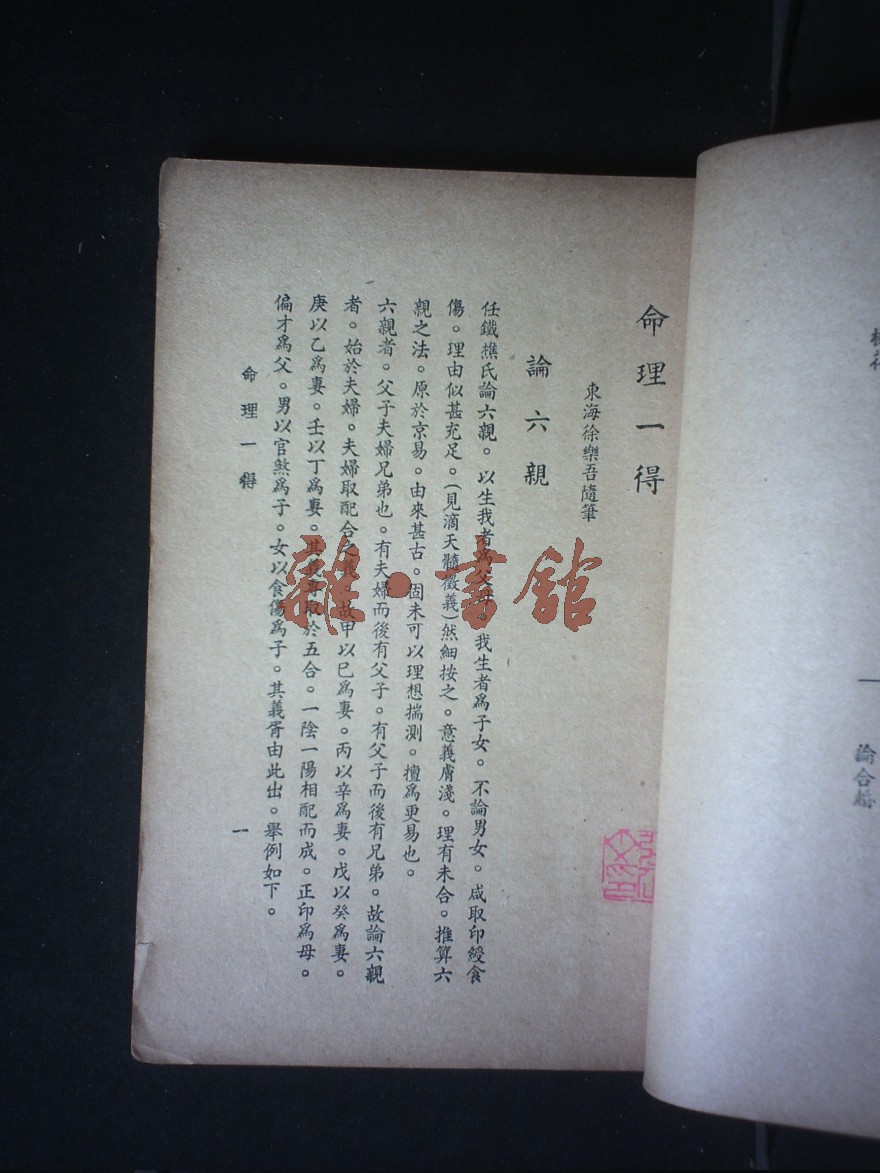 命理一得
東海徐樂吾隨筆
論六親
任鐵樵氏論六親。以生我者爲父母。我生者爲子女。不論男女。咸取印綬食
傷。理由似甚充足。(見滴天髓徵義)然細按之。意義膚淺。理有未合。推算六
親之法。原於京易。由來甚古。固未可以理想揣測。擅爲更易也。
六親者。父子夫婦兄弟也。有夫婦而後有父子。有父子而後有兄弟。故論六親
者。始於夫婦。夫婦取配合之義。故甲以巳爲妻。丙以辛爲妻。戊以癸爲妻。
庚以乙爲妻。壬以丁爲妻。其義專取於五合。一陰一陽相配而成。正印爲母。
偏才爲父。男以官煞爲子。女以食傷爲子。其義胥由此出。舉例如下。
命理一得
一
論合婚
雜·書館